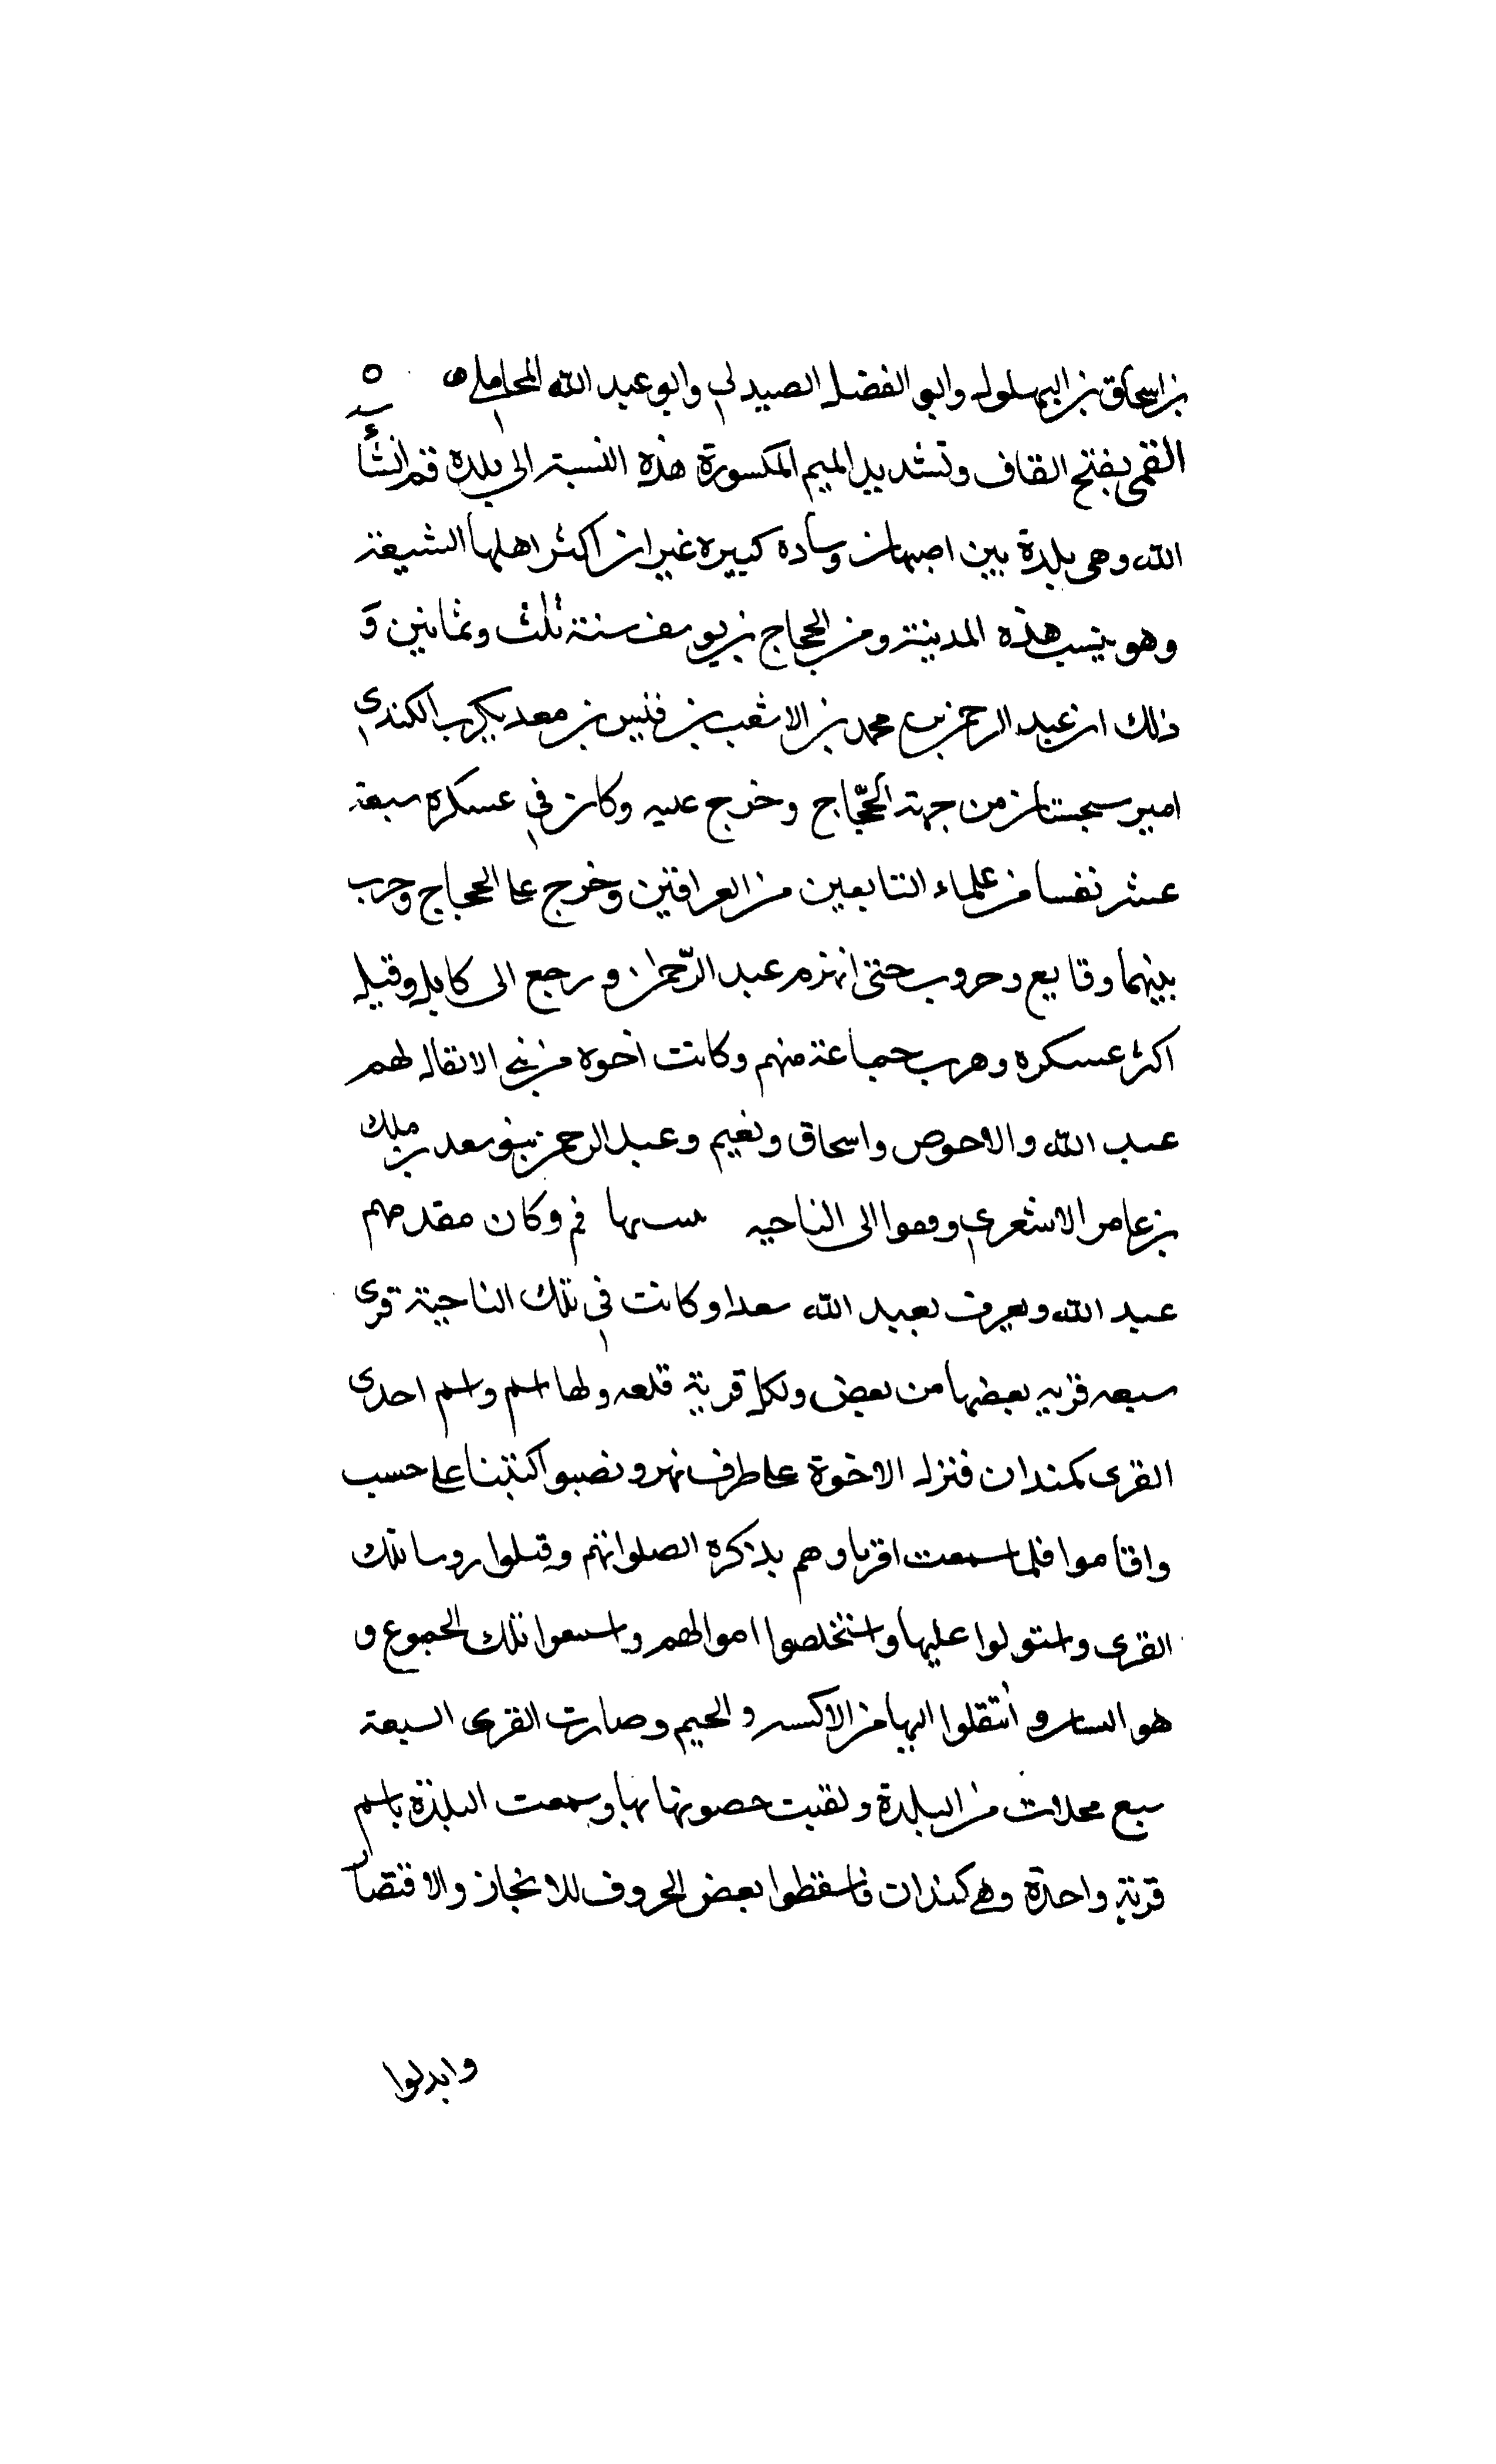 بن اسحاق بن البهلول وابو الفضل الصيدلي وابو عبد الله المحاملي ه
القمي بفتح القاف وتشديد الميم المكسورة هذه النسبة الى بلدة قم انشأ
الله وهي بلدة بين اصبهان وساده كبيره غير ان اكثر اهلها الشيعة
وهو هذه المدينة ومن الحجاج بن يوسف سنة ثلث وثمانين و
ذلك ان عبد الرحمن بن محمد بن الاشعب بن قيس بن معديكرب الكندي
امير سجستان من جهة الحجّاج وخرج عليه وكان في عسكره سبعة
عشر نفسا من علماء التابعين من العراقين وخرج على الحجاج وجرب
بينهما وقايع وحروب حتى انهزم عبد الرّحمان ورجع الى كابل وقتل
اكثر عسكره وهرب جماعة منهم وكانت اخوه من لهم
عبد الله والاحوص واسحاق ونعيم وعبد الرحمن بنو سعد بن ملك
بن عامر الاشعري الى الناحيه قم وكان مقدمهم
عبد الله ويعرف بعبد الله سعدا وكانت في تلك الناحية قرى
سبعه قريه بعضها من بعض ولكل قرية قلعه ولها اسم واسم احدى
القرى كمندان فنزل الاخوة على طرف نهر ونصبوا على حسب
واقاموا فلما سمعت اقرباوهم بذكره وقتلوا روسا تلك
القرى واستولوا عليها واستخلصوا اموالهم تلك الجموع و
هو وانتقلوا اليها من وصارت القرى السبعة
سبع محلات من البلدة ولقبت حصونها بها وسمعت البلدة باسم
قرية واحدة وهي كمندان فاسقطوا بعض الحروف للانجاز والاقتصار
وابدلوا